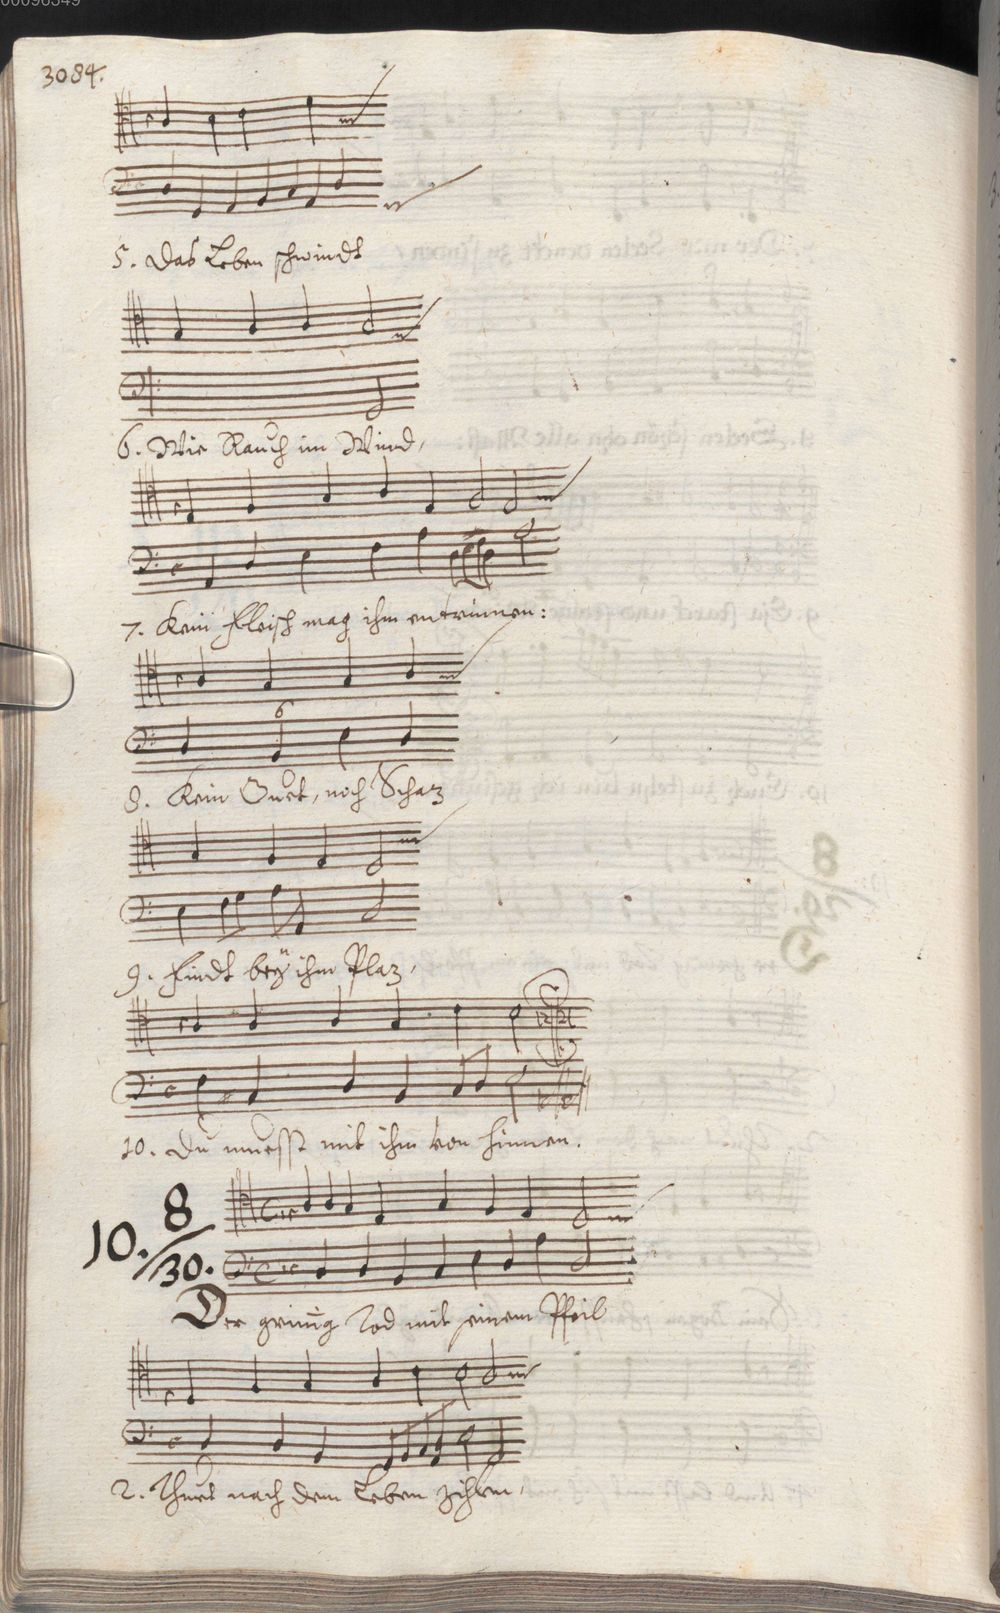 3084.
5. Das Leben schwindt
6. Wie Rauch im Wind,
7. Kein Fleisch mag ihm entrinnen:
6
8. Kein Guet, noch Schaz
9. Findt beÿ ihm Plaz,
10. Du muesst mit ihm von hinnen.
10. 8/30.
Der grimig Tod mit seinem Pfeil
2. Thuet nach dem Leben zihlen,